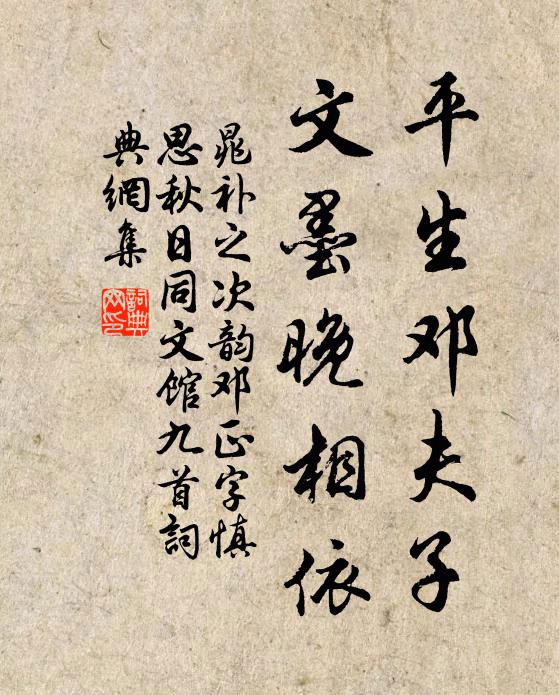 平生邓夫子
文墨晚相依
晁补之次韵邓正字慎
思秋日同文馆九首詞
典網集
詞典
网印